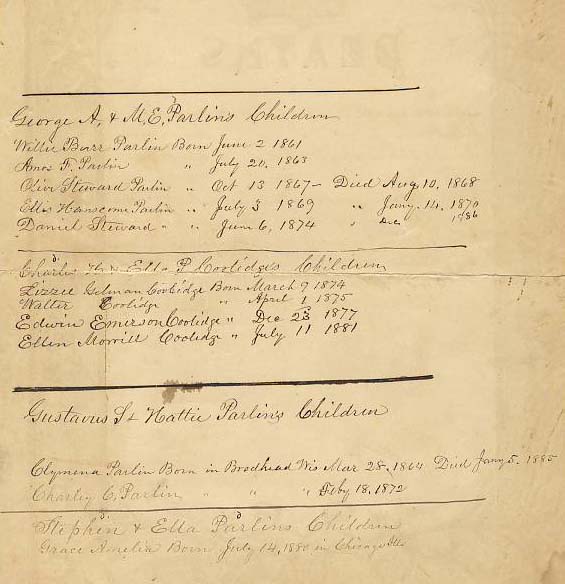 DEATHS
George A, & M, E, Parlin's Children
Willie Burr Parlin Born June 2 1861
Amos F. Parlin " July 20, 1863
Olive Steward Parlin " Oct 13 1867 - Died Aug, 10, 1868
Ellis Hanscome Parlin " July 3 1869 " Jany. 14, 1870
Daniel Steward " " June 6, 1874 " Dec 1886
Charles & Ella P Coolidge's Children
Lizzie Gilman Coolidge Born March 9 1874
Walter Coolidge " April 1 1875
Edwin Emerson Coolidge " Dec 23 1877
Ellen Morrill Coolidge " July 11 1881
Gustavus S & Hattie Parlin's Children
Clymena Parlin Born in Brodhead Wis Mar 28, 1864 Died Jany 5, 1885
Charley C, Parlin " " " Feby 18, 1872
Stephen & Ella Parlins Children
Grace Amelia Born July 14, 1880 in Chicago Ills